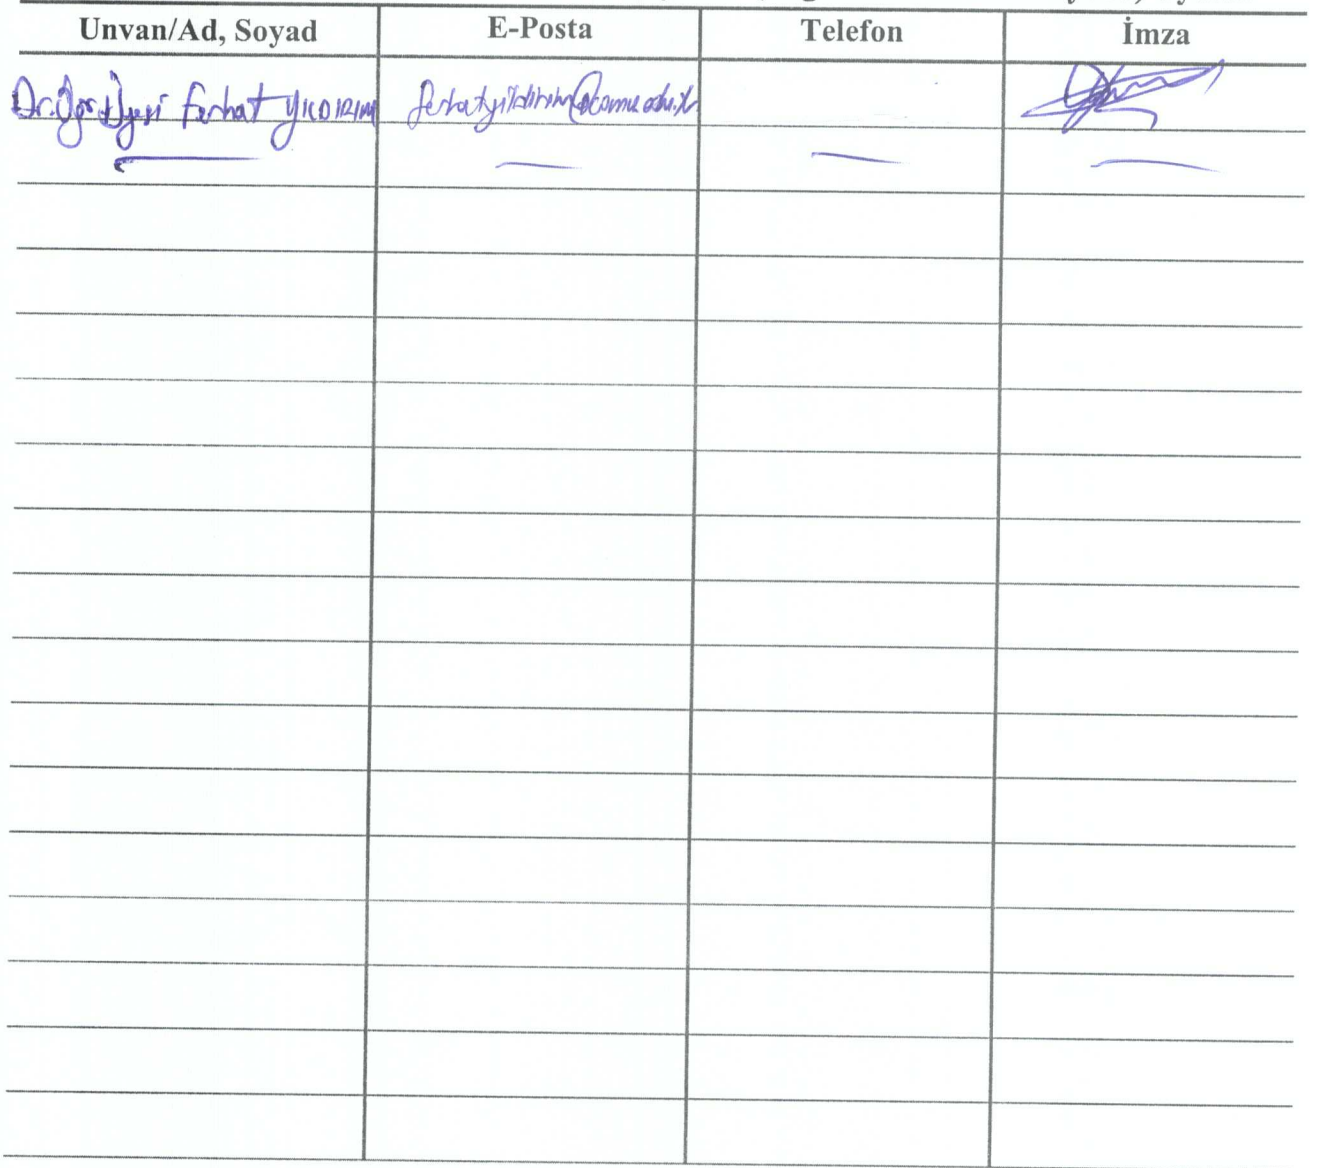 Unvan/Ad, Soyad E-Posta Telefon İmza
Dr. Öğr. Üyesi Ferhat YILDIRIM ferhatyildirim@comu.edu.tr